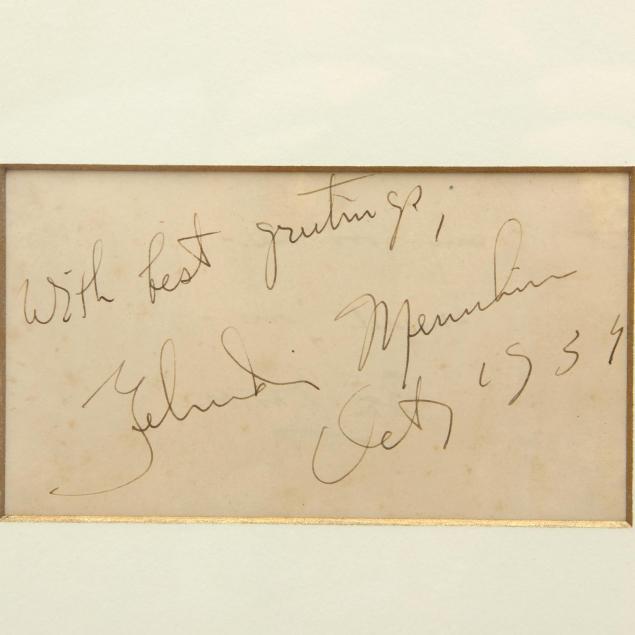 With best greetings,
Yehudi Menuhin
Oct, 1937